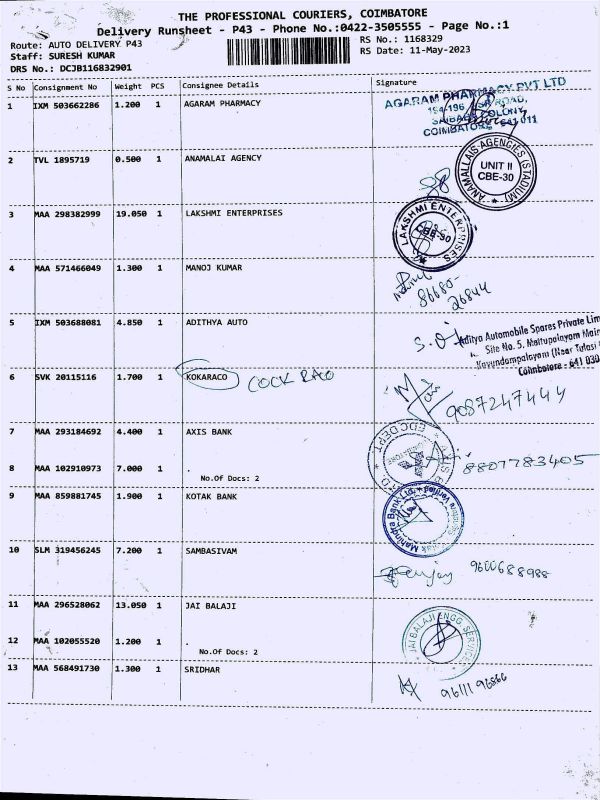 THE PROFESSIONAL COURIERS, COIMBATORE
Delivery Runsheet - P43 - Phone No.:0422-3505555 - Page No.:1
Route: AUTO DELIVERY P43
RS No.: 1168329
Staff: SURESH KUMAR
RS Date: 11-May-2023
DRS No.: DCJB116832901
S No Consignment No Weight PCS Consignee Details Signature
1 IXM 503662286 1.200 1 AGARAM PHARMACY
AGARAM PHARMACY PVT LTD
COLONY,
2 TVL 1895719 0.500 1 ANAMALAI AGENCY
ANAMALLAIS AGENCIES (STADIUM)
UNIT II
CBE-30
3 MAA 298382999 19.050 1 LAKSHMI ENTERPRISES
LAKSHMI ENTERPRISES
CBE-30
4 MAA 571466049 1.300 1 MANOJ KUMAR
86680-
26844
5 IXM 503688081 4.850 1 ADITHYA AUTO
Aditya Automobile Spares Private Lim
Site No. 5, Mettupalayam Main
Kavundampalayam (Near Tulasi
Coimbatore - 641 030
6 SVK 20115116 1.700 1 KOKARACO COCK RACO
9087247444
7 MAA 293184692 4.400 1 AXIS BANK
EDC DEPT
8807783405
8 MAA 102910973 7.000 1 .
No.Of Docs: 2
9 MAA 859881745 1.900 1 KOTAK BANK
Kotak Mahindra Bank Ltd.
10 SLM 319456245 7.200 1 SAMBASIVAM
9600688988
11 MAA 296528062 13.050 1 JAI BALAJI
JAI BALAJI ENGG SERVICE
12 MAA 102055520 1.200 1 .
No.Of Docs: 2
13 MAA 568491730 1.300 1 SRIDHAR
96111 96866